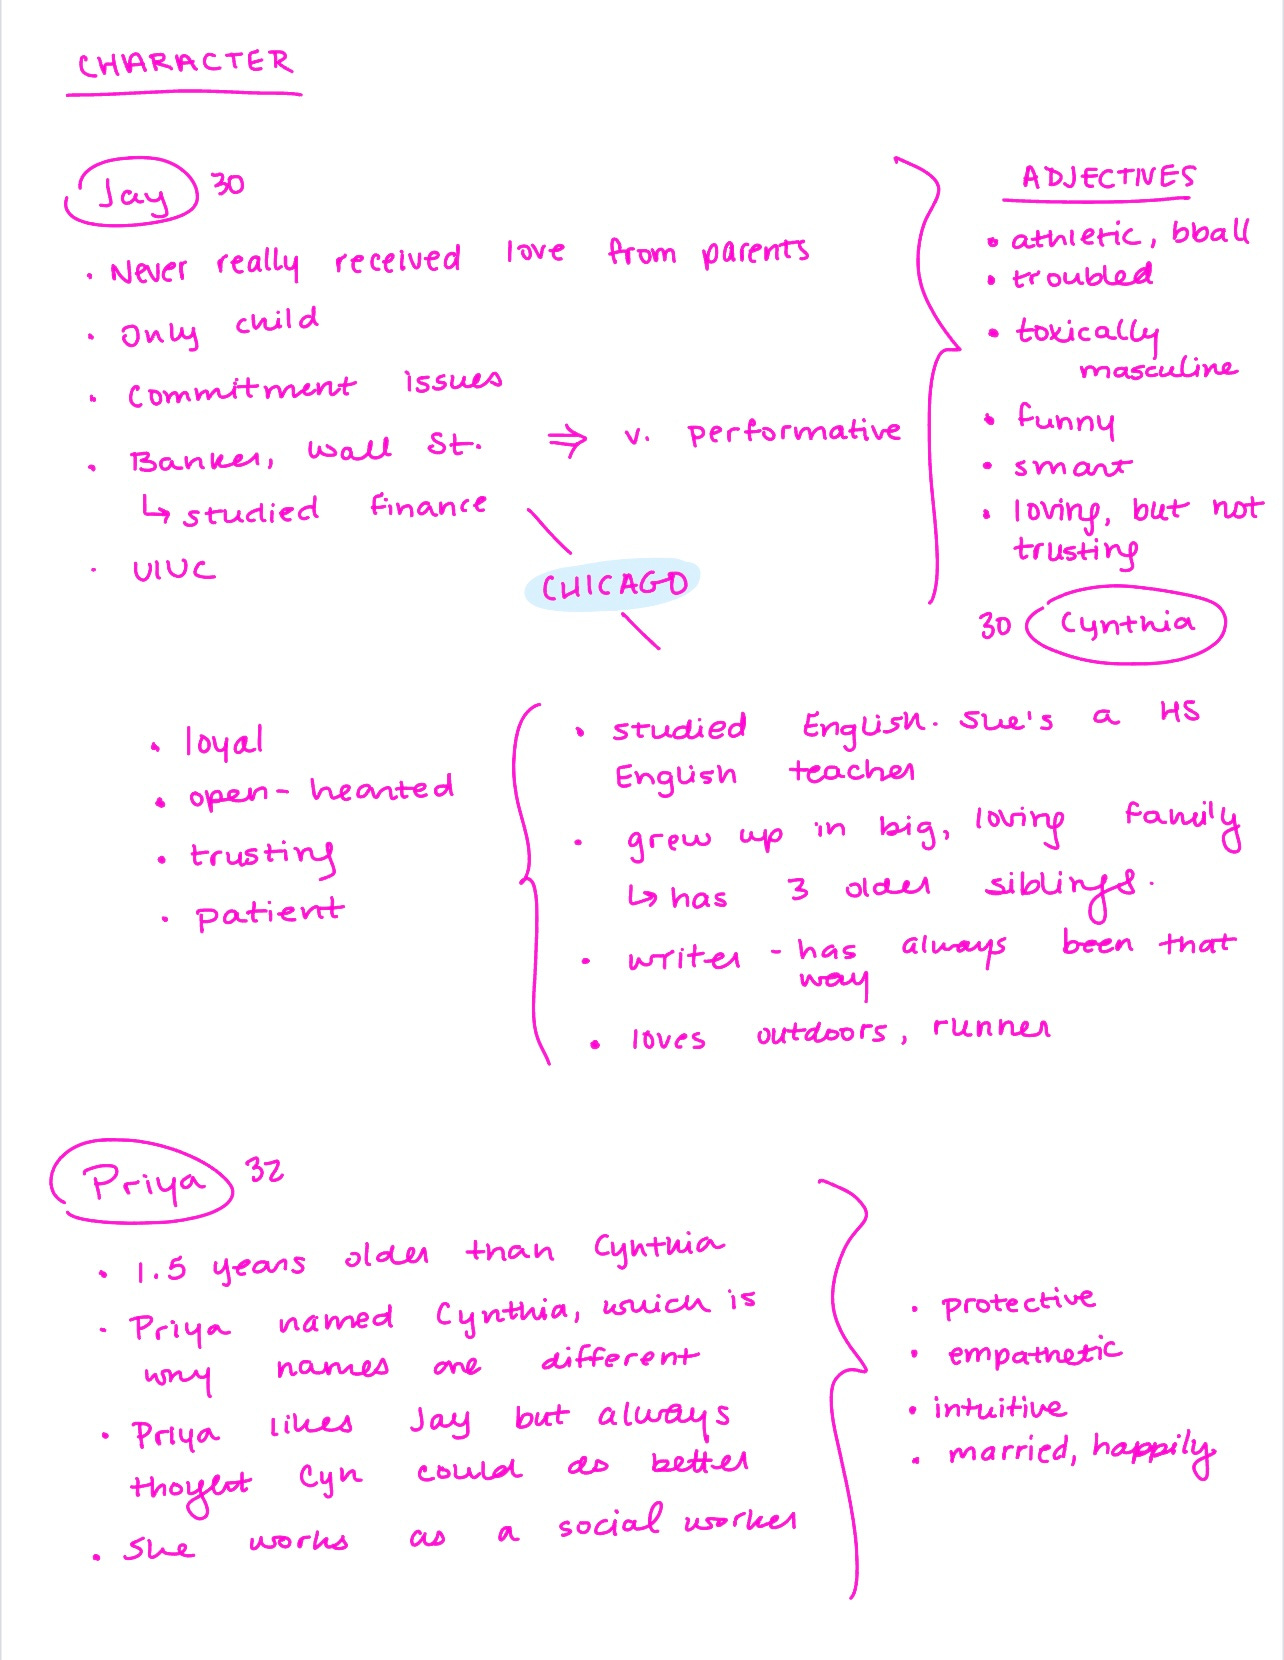 CHARACTER
Jay 30
• Never really received love from parents
• Only child
• Commitment issues
• Banker, Wall St. ⇒ v. performative
↳ studied finance
• UIUC
ADJECTIVES
• athletic, bball
• troubled
• toxically
masculine
• funny
• smart
• loving, but not
trusting
CHICAGO
30 Cynthia
• studied English. She's a HS
English teacher
• grew up in big, loving family
↳ has 3 older siblings.
• writer - has always been that
way
• loves outdoors, runner
• loyal
• open-hearted
• trusting
• patient
Priya 32
• 1.5 years older than Cynthia
• Priya named Cynthia, which is
why names are different
• Priya likes Jay but always
thought Cyn could do better
• She works as a social worker
• protective
• empathetic
• intuitive
• married, happily